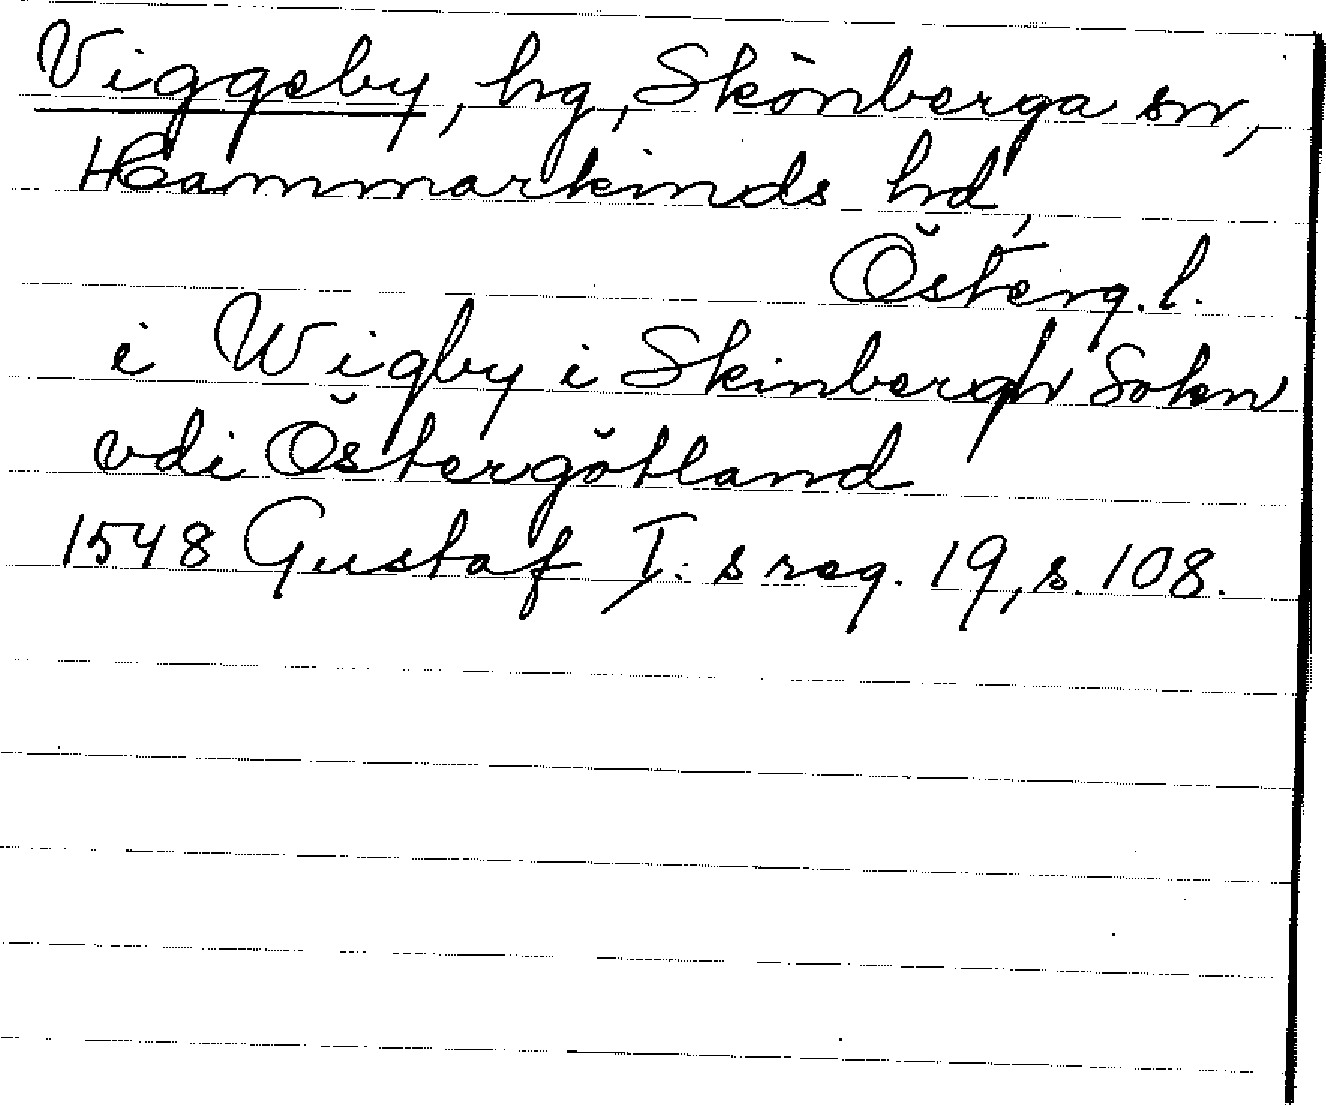 Viggeby, hg, Skönberga sn,
Hammarkinds hd,
Österg.l.
i Wigby i Skinbergh Sokn
vdi Östergötland
1548 Gustaf I:s reg. 19, s. 108.